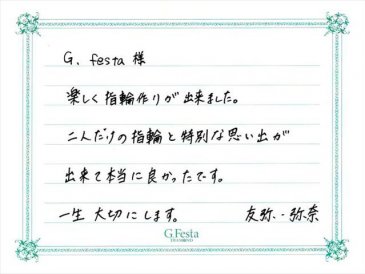 G. festa 様
楽しく指輪作りが出来ました。
二人だけの指輪と特別な思い出が
出来て本当に良かったです。
一生大切にします。 友弥・弥奈
G.Festa
DIAMOND